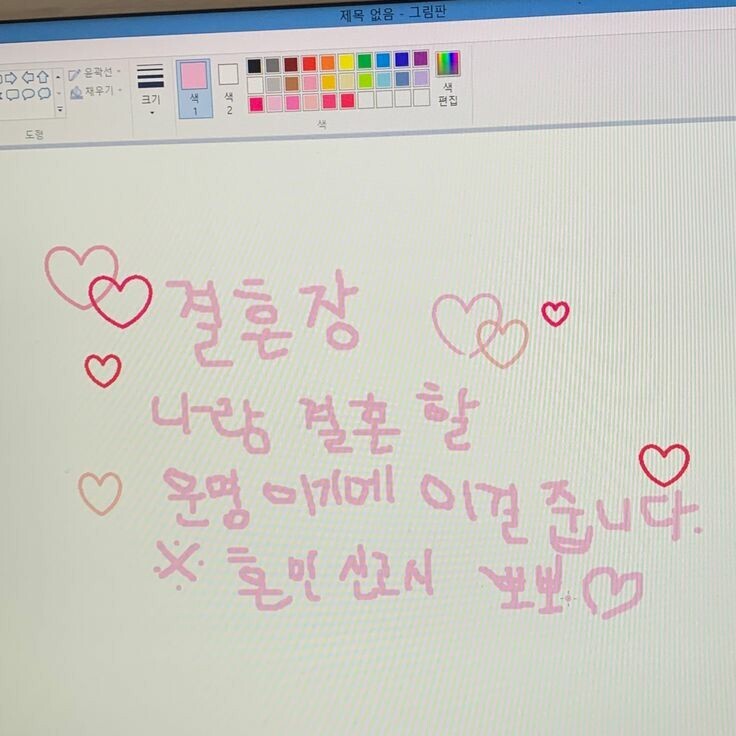 제목 없음 - 그림판
윤곽선
채우기
크기
색
1
색
2
색
편집
도형
색
결혼장
나랑 결혼할
운명이기에 이걸 줍니다.
※ 혼인신고시 뽀뽀♡